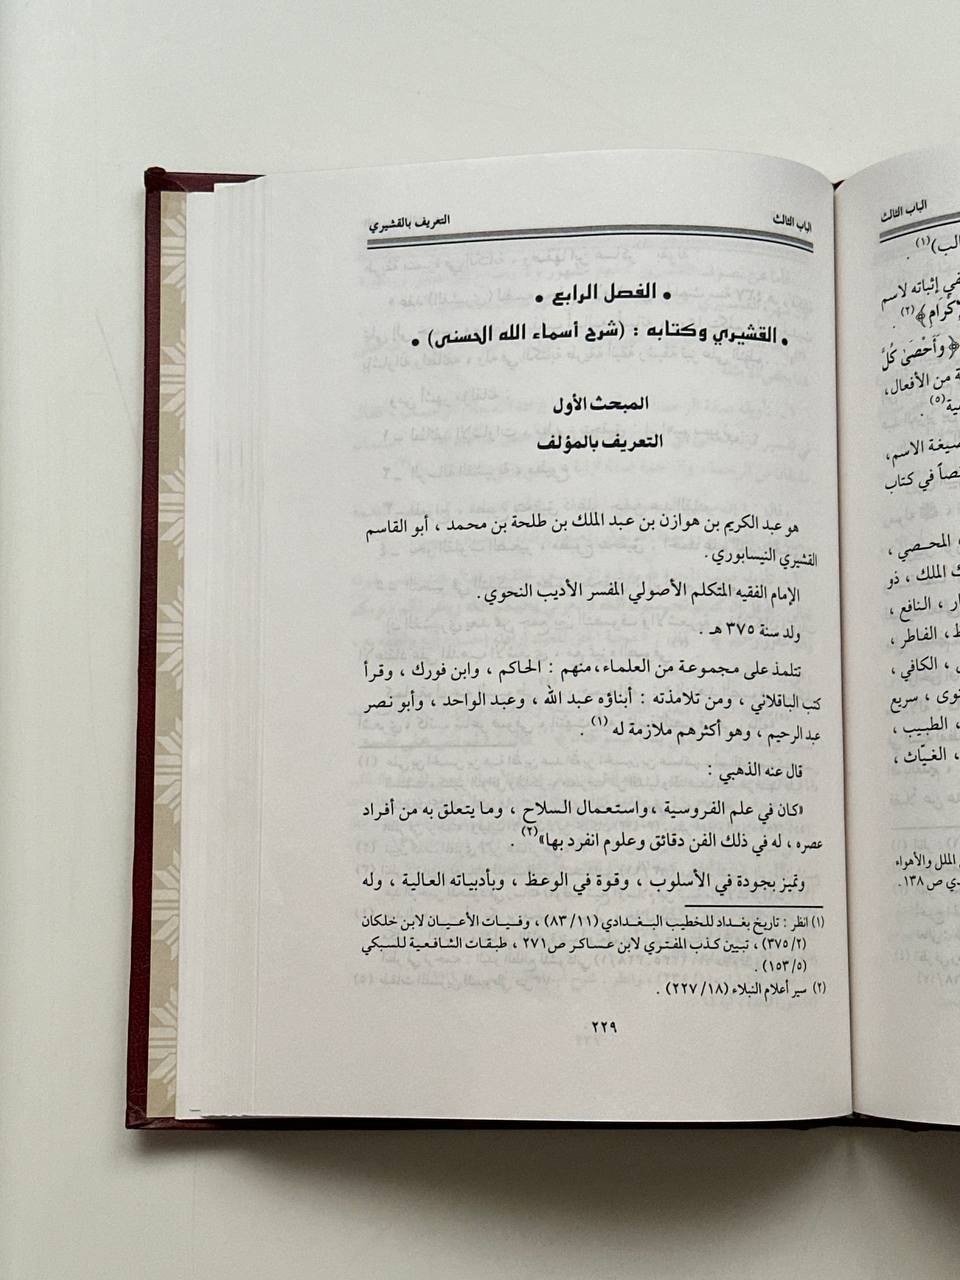 الباب الثالث
التعريف بالقشيري
• الفصل الرابع •
• القشيري وكتابه : (شرح أسماء الله الحسنى) •
المبحث الأول
التعريف بالمؤلف
هو عبد الكريم بن هوازن بن عبد الملك بن طلحة بن محمد ، أبو القاسم
القشيري النيسابوري .
الإمام الفقيه المتكلم الأصولي المفسر الأديب النحوي .
ولد سنة ٣٧٥ هـ .
تتلمذ على مجموعة من العلماء،منهم : الحاكم ، وابن فورك ، وقرأ
كتب الباقلاني ، ومن تلامذته : أبناؤه عبد الله ، وعبد الواحد ، وأبو نصر
عبد الرحيم ، وهو أكثرهم ملازمة له (١) .
قال عنه الذهبي :
«كان في علم الفروسية ،واستعمال السلاح ، وما يتعلق به من أفراد
عصره ، له في ذلك الفن دقائق وعلوم انفرد بها»(٢) .
وتميز بجودة في الأسلوب ، وقوة في الوعظ ، وبأدبياته العالية ، وله
(١) انظر : تاريخ بغداد للخطيب البغدادي (٨٣/١١) ، وفيات الأعيان لابن خلكان
(٣٧٥/٢) ، تبيين كذب المفتري لابن عساكر ص٢٧١ ، طبقات الشافعية للسبكي
(١٥٣/٥) .
(٢) سير أعلام النبلاء (٢٢٧/١٨) .
٢٢٩
الباب الثالث
(١) .
في إثباته لاسم
(٢) .
﴿وَأَحْصَىٰ كُلَّ
من الأفعال،
(٥) .
صيغة الاسم،
في كتاب
المحصي ،
الملك ، ذو
، النافع ،
، الفاطر ،
، الكافي ،
، سريع
، الطبيب ،
، الغيّاث ،
الملل والأهواء
ص ١٣٨ .